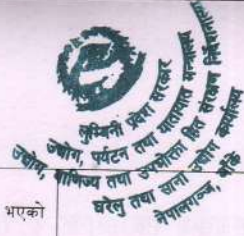 लुम्बिनी प्रदेश सरकार
उद्योग, पर्यटन तथा यातायात मन्त्रालय
उद्योग, वाणिज्य तथा उपभोक्ता हित संरक्षण निर्देशनालय
घरेलु तथा साना उद्योग कार्यालय
नेपालगञ्ज, बाँके
भएको